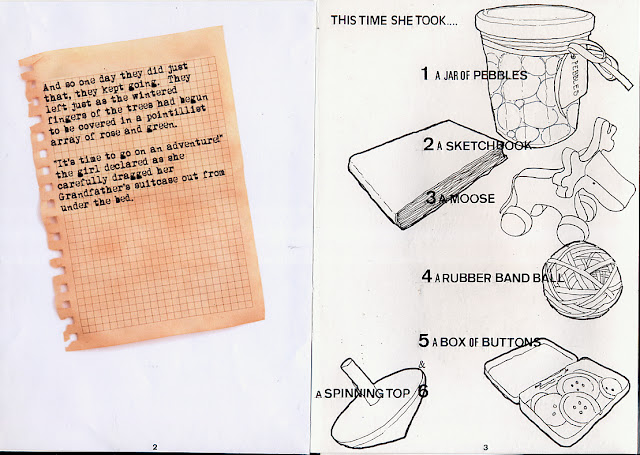 And so one day they did just
that, they kept going. They
left just as the wintered
fingers of the trees had begun
to be covered in a pointillist
array of rose and green.
"It's time to go on an adventure!"
the girl declared as she
carefully dragged her
Grandfather's suitcase out from
under the bed.
2
THIS TIME SHE TOOK....
1 A JAR OF PEBBLES
PEBBLES
2 A SKETCHBOOK
3 A MOOSE
4 A RUBBER BAND BALL
5 A BOX OF BUTTONS
&
A SPINNING TOP 6
3